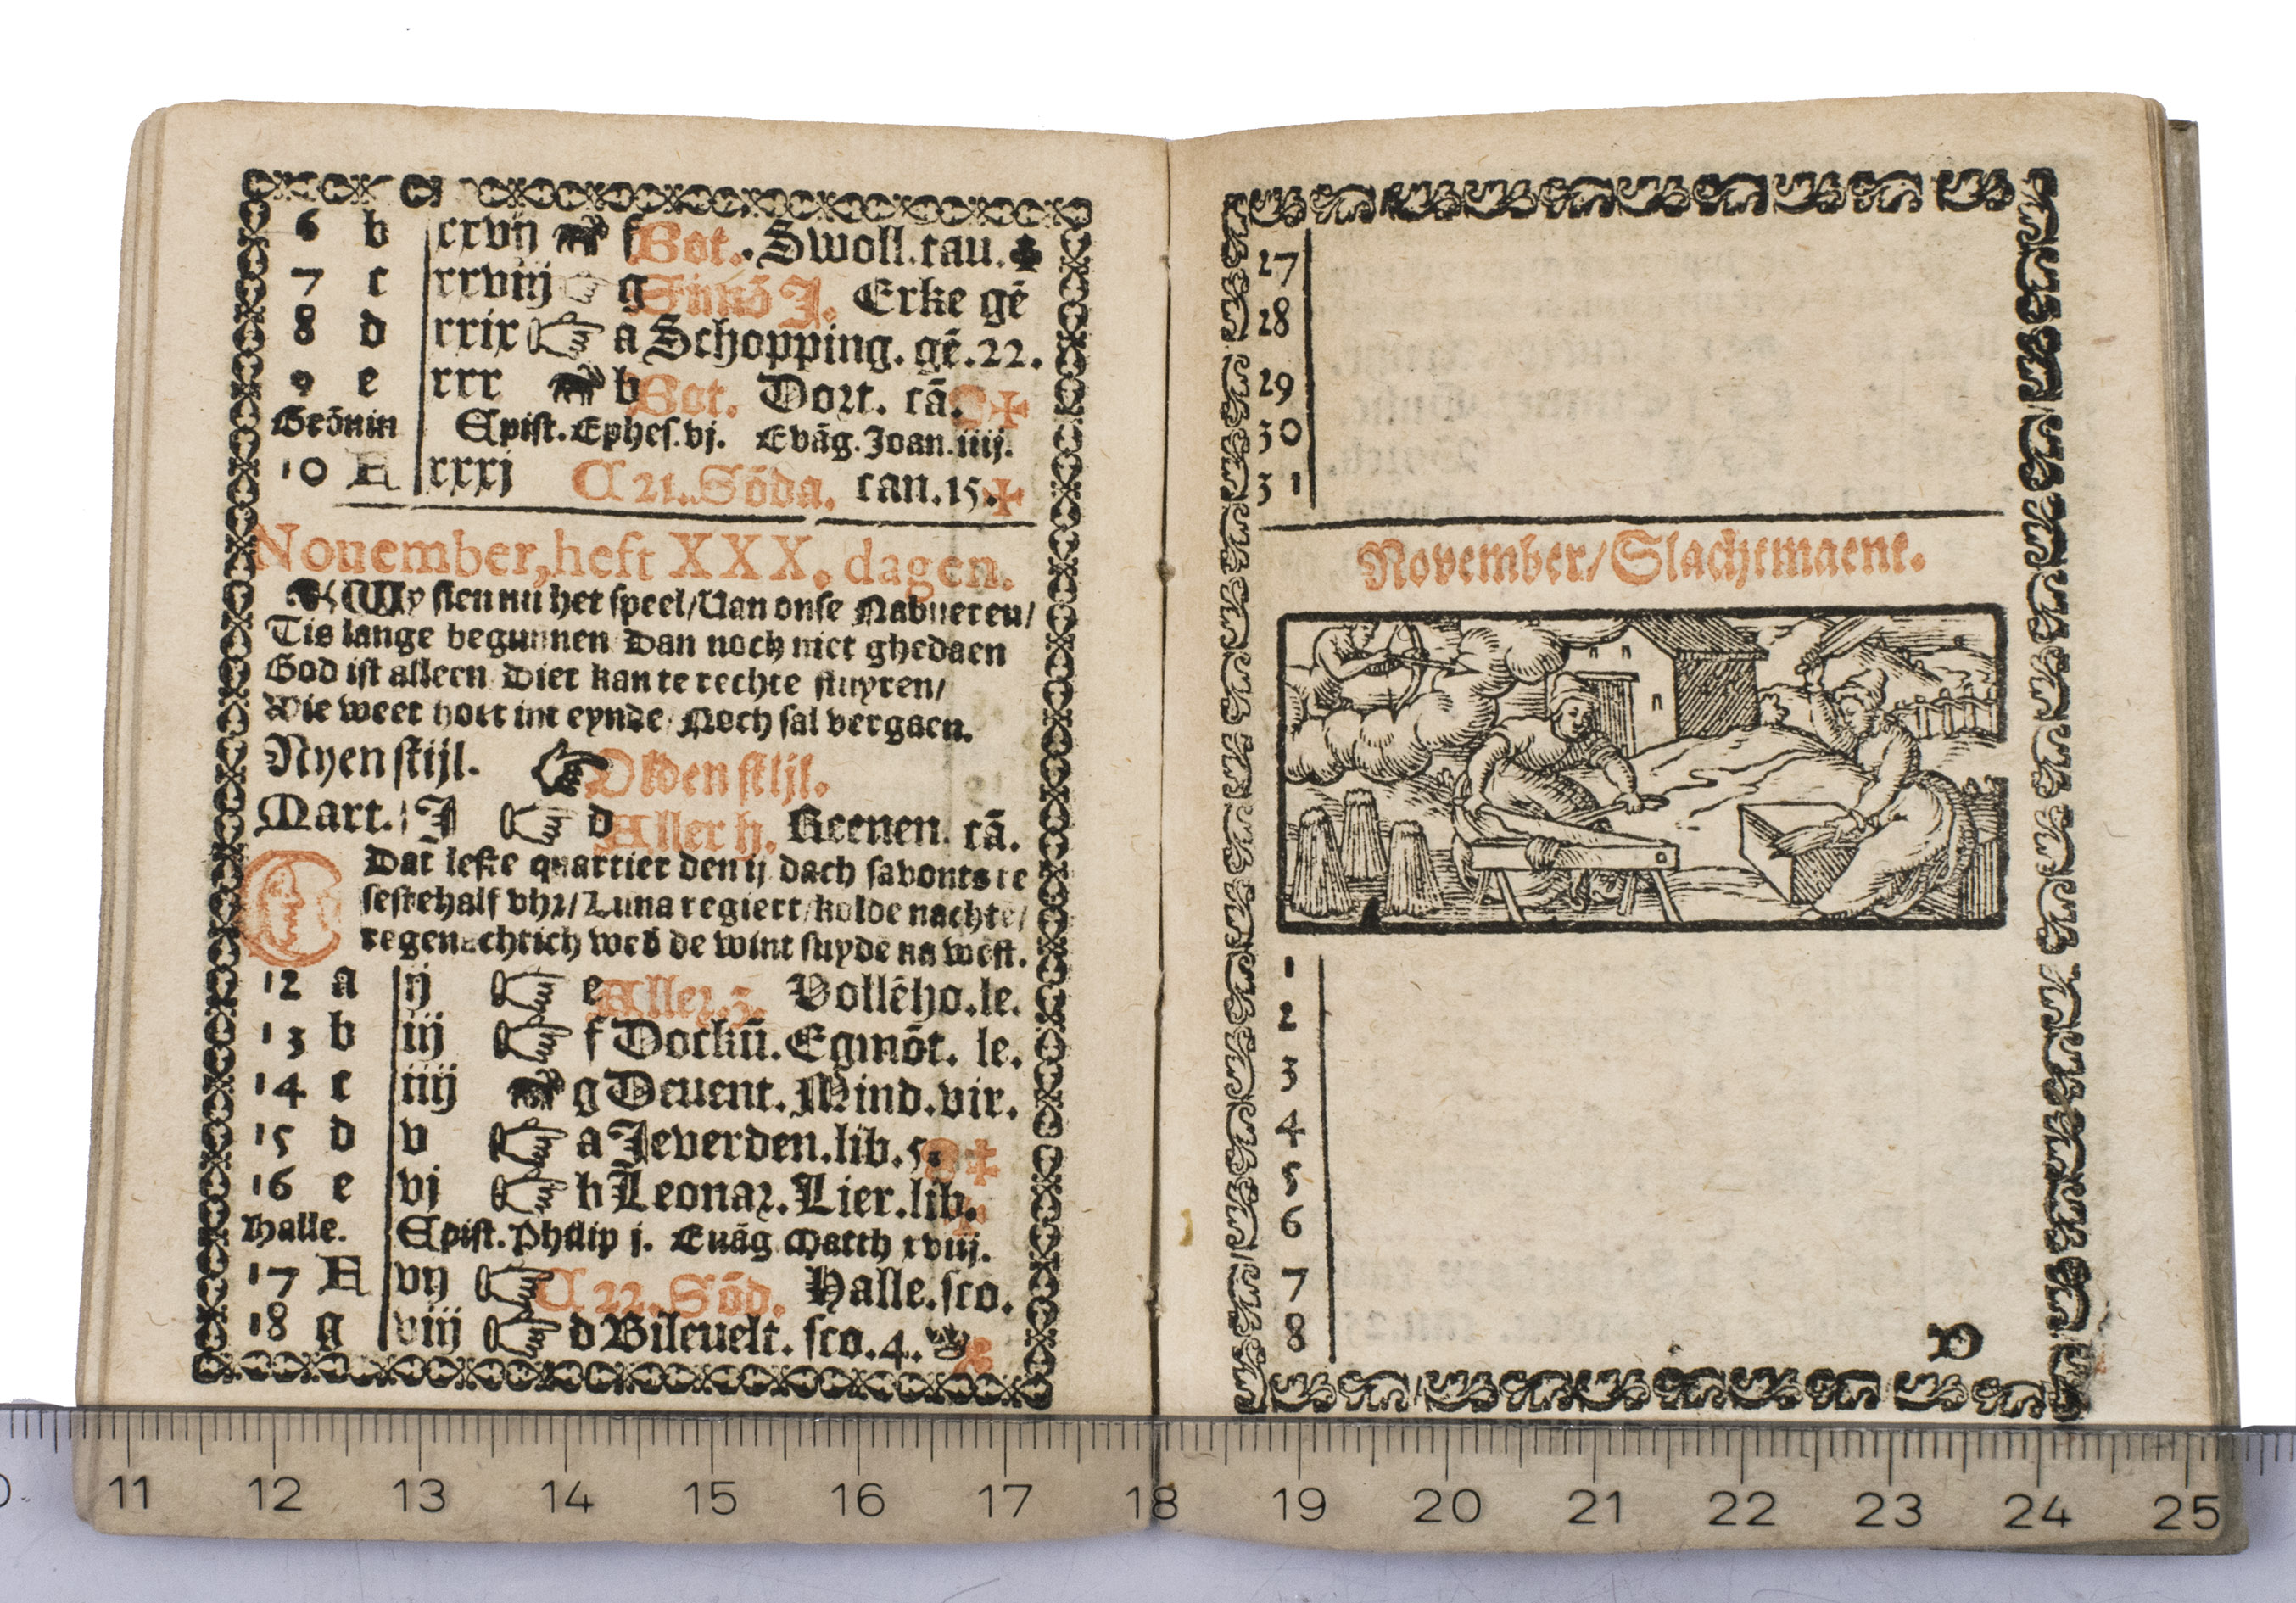 6 b xxvij f Bot. Swoll. tau.
7 c xxviij g Simō J. Erke gē
8 d xxix a Schopping. gē. 22.
9 e xxx b Bot. Dort. cā.
Grōnin Epist. Ephes. vj. Evāg. Joan. iiij.
10 A xxxj C 21. Sōda. can. 15.
Nouember, heft XXX. dagen.
Wy sien nu het speel/Van onse Nabueren/
Tis lange begunnen Dan noch niet ghedaen
God ist alleen Diet kan te rechte stuyren/
Wie weet hoet int eynde/Noch sal vergaen.
Nyen stijl. Olden stijl.
Mart. J d Aller h. Geenen. cā.
Dat leste quartier den ij dach savonts te
sestehalf vhr/Luna regiert/kolde nachte/
regenachtich wed de wint suyde na west.
12 a ij e Aller. z. Vollēho. le.
13 b iij f Dockū. Egmōt. le.
14 c iiij g Deuent. Mind. vir.
15 d v a Jeverden. lib. 5.
16 e vj b Leonar. Lier. lib.
Halle. Epist. Philip j. Euāg Matth xviij.
17 A vij C 22. Sōd. Halle. sco.
18 g viij d Bileuelt. sco. 4.
27
28
29
30
31
November/Slachtmaent.
1
2
3
4
5
6
7
8
D
11 12 13 14 15 16 17 18 19 20 21 22 23 24 25